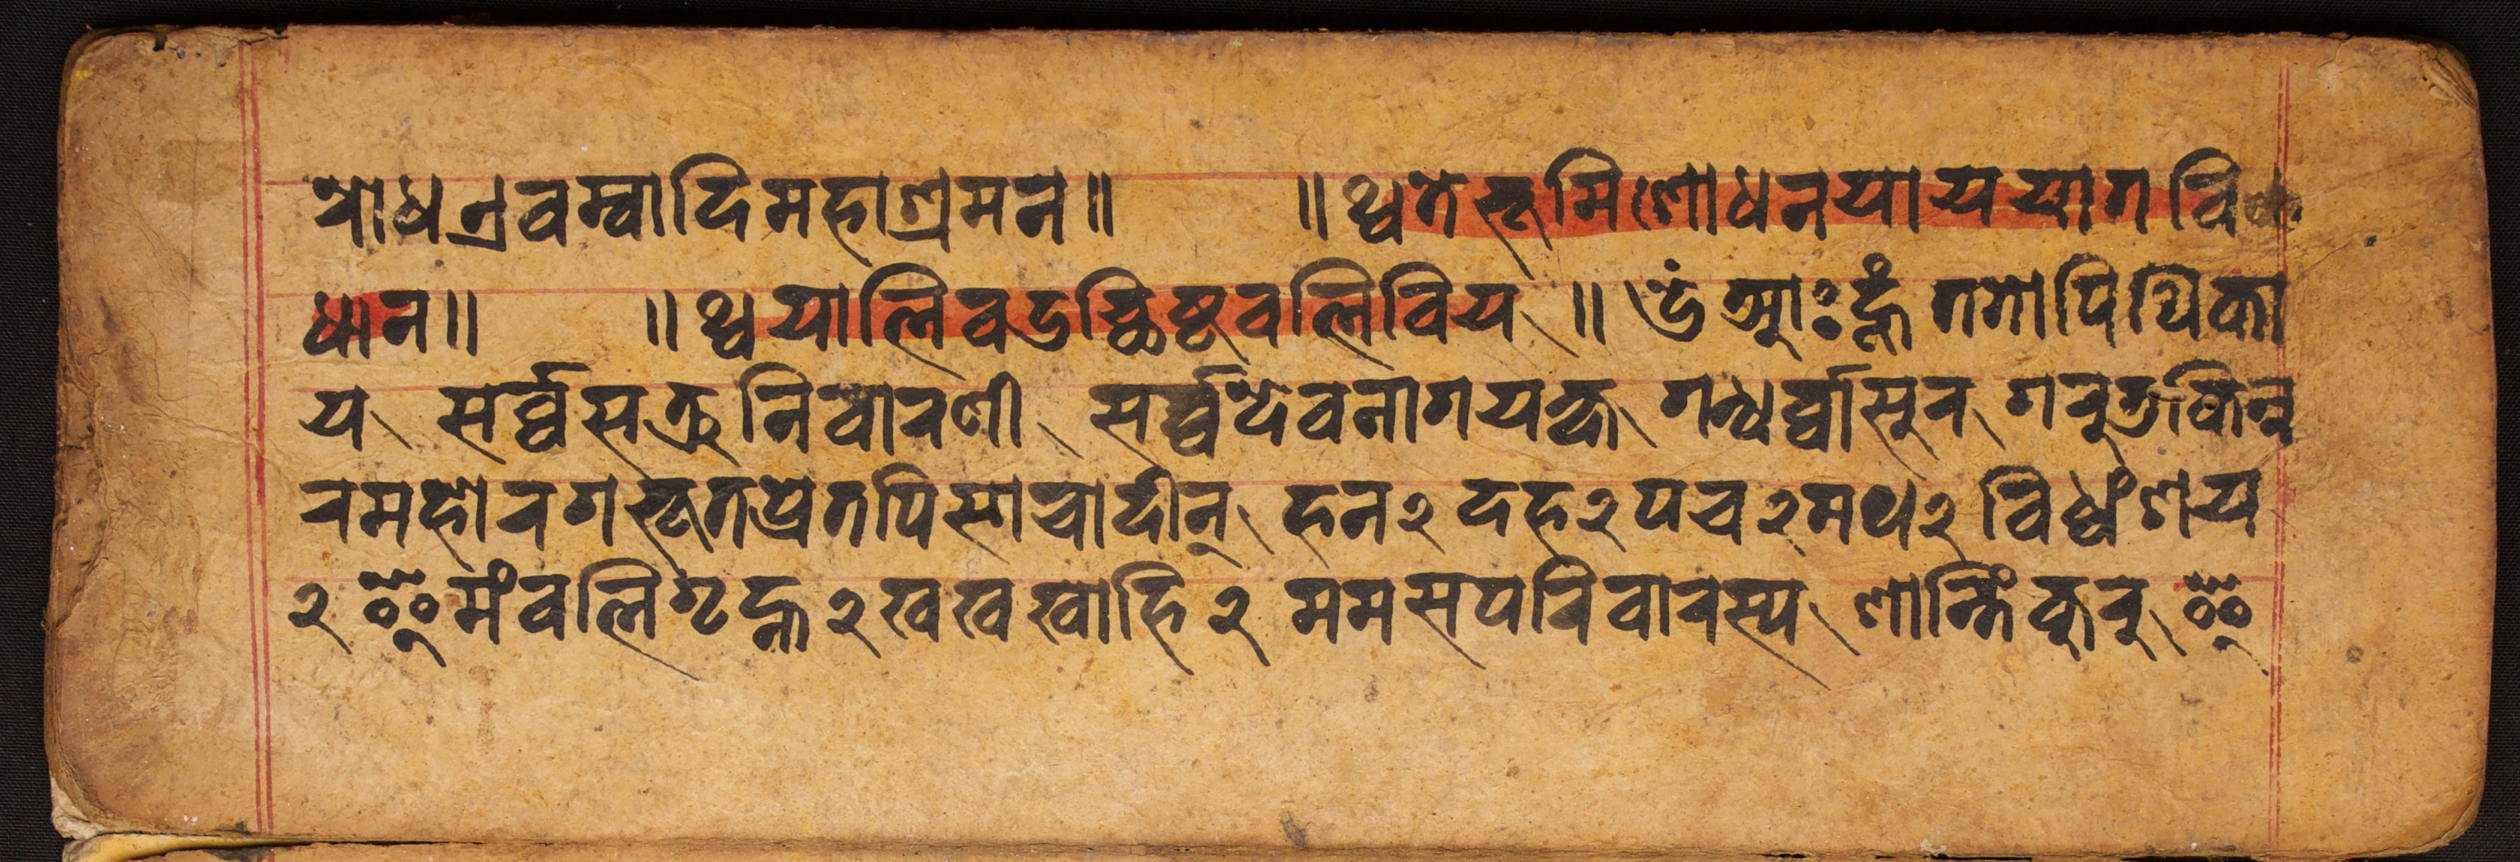 त्राधन्रवम्बादिमहाश्रमन॥ ॥थ्वतेभूमिशोधनयाययागवि
धान॥ ॥थ्वयालिवउच्छिष्टवलिविय ॥ उँ आः हूँ तगोपिथिका
य सर्व्वसत्रुनिवारणी सर्व्वदेवनागयक्ष गन्धर्व्वासुर गरुडकिन्न
रमहोरगभूतप्रेतपिसाचादीन् हन२ दह२ पच२ मथ२ विध्वंशय
२ इमंवलिगृह्न२ खखखाहि२ ममसपरिवारस्य शान्तिं कुरु इ